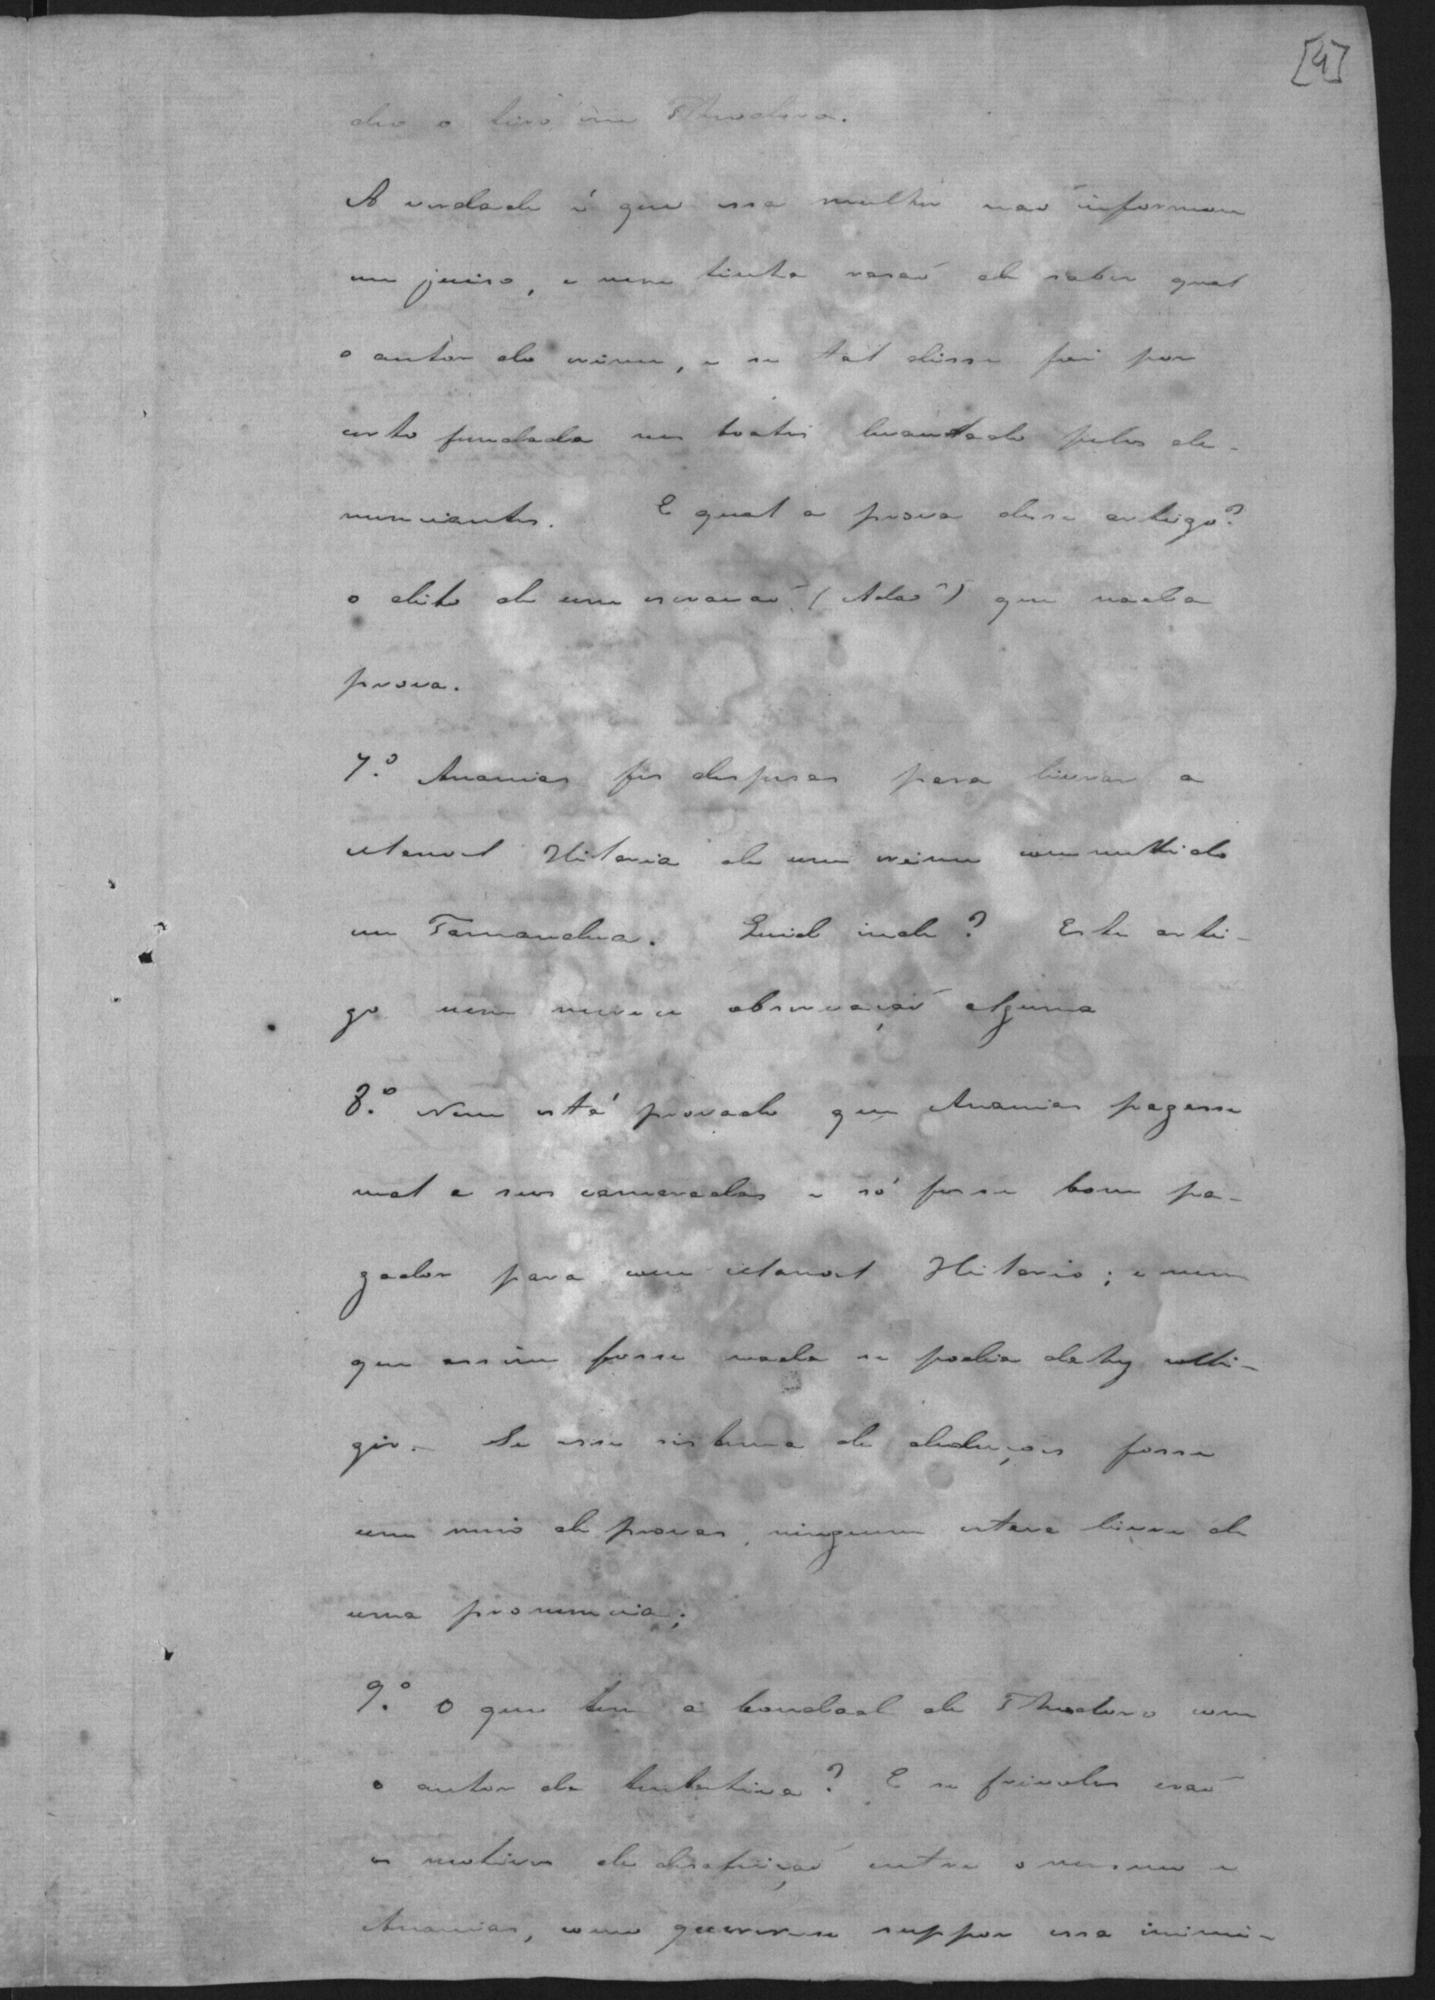 [4]
deo o tiro em Theodoro.
A verdade é que essa mulher não informou
em juiso, e nem tinha rasaõ de saber qual
o autor do crime, e se tal disse foi por
certo fundada nos boatos levantado pelos de-
nunciantes. E qual a prova desse artigo?
o dito de um escravaõ (Adaõ) que nada
prova.
7.º Ananias fes despesas para livrar a
Manoel Hilario de um crime commettido
em Tamandua. Quid inde? Este arti-
go nem merece observaçaõ alguma
8.º Nem está provado que Ananias pagasse
mal a seus camaradas e só fosse bom pa-
gador para com Manoel Hilario; e nem
que assim fosse nada se podia dahy colli-
gir. Se esse sistema de deduçoes fosse
um meio de provas, ninguem estava livre de
uma pronuncia;
9.º O que tem a bondad de Theodoro com
o autor da tentativa? E se frivolos eraõ
os motivos de desafeiçaõ entre o mesmo e
Ananias, como querer-se suppor essa inimi-